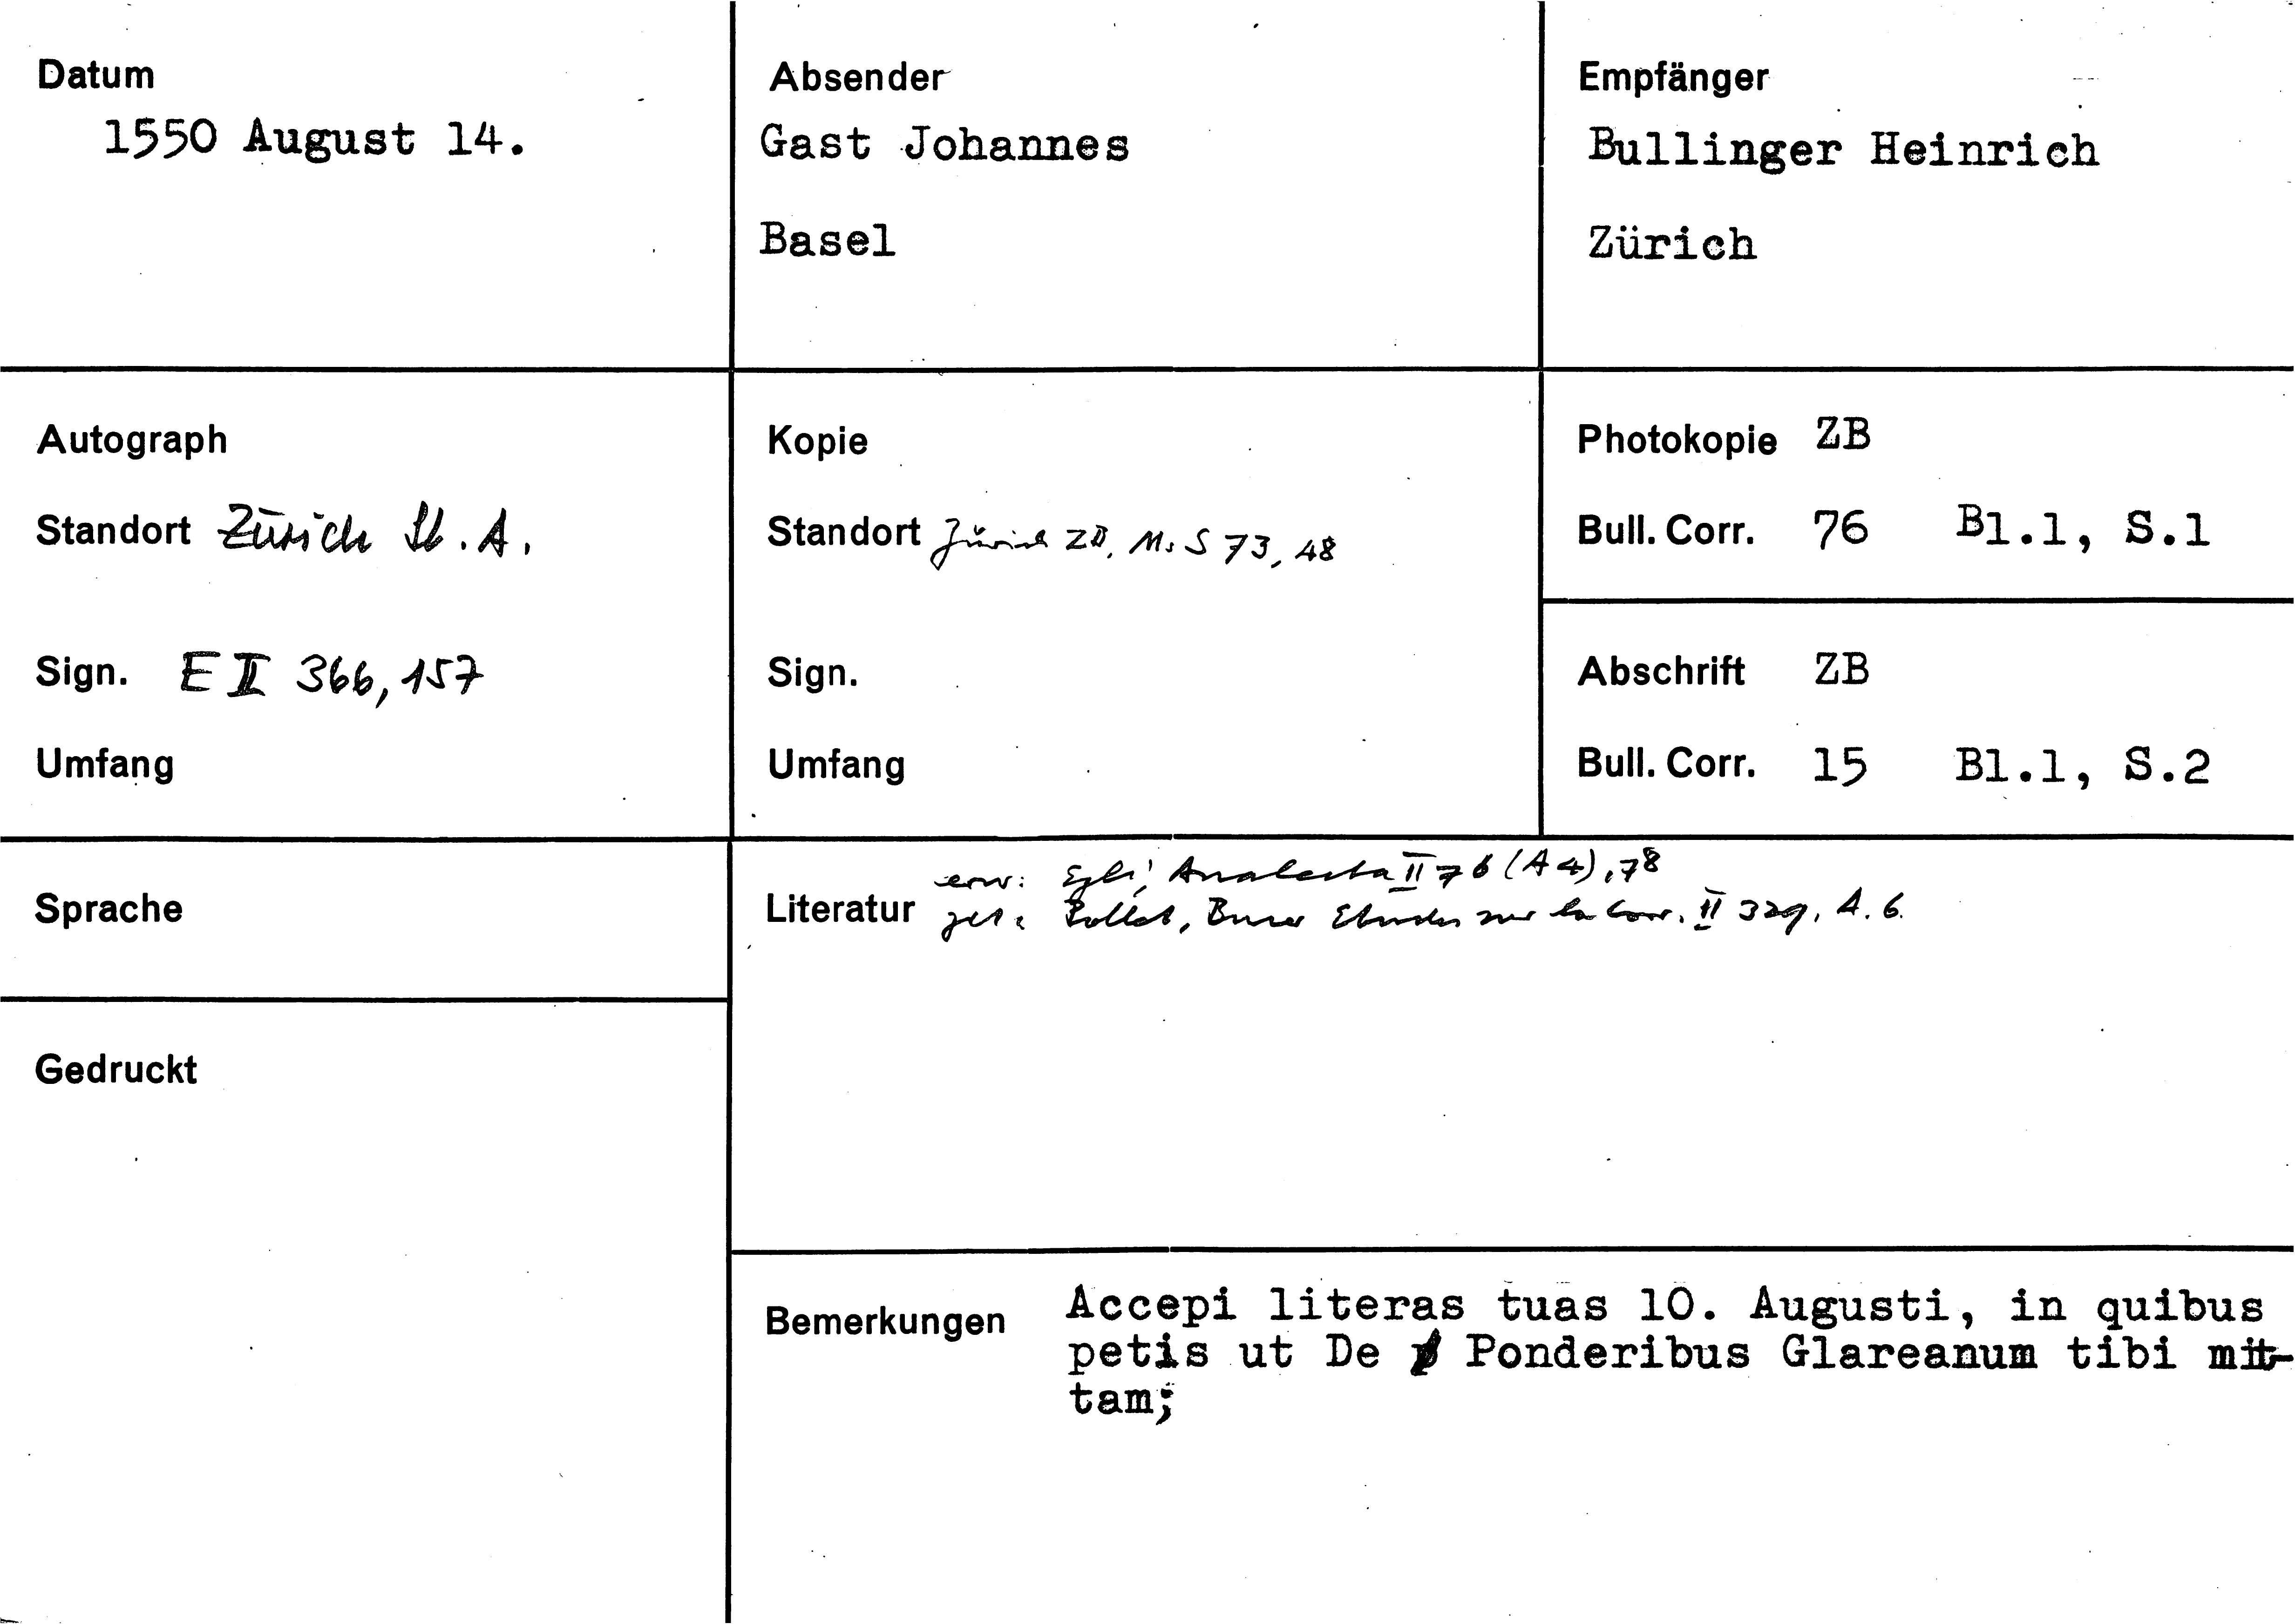 Datum
1550 August 14.
Absender
Gast Johannes
Basel
Empfänger
Bullinger Heinrich
Zürich
Autograph
Standort Zürich St. A.
Sign. E II 366, 157
Umfang
Kopie
Standort Zürich ZB, Ms S 73, 48
Sign.
Umfang
Photokopie ZB
Bull. Corr. 76 Bl.1, S.1
Abschrift ZB
Bull. Corr. 15 Bl.1, S.2
Sprache
Gedruckt
Literatur
erw: Egli, Analecta II 76 (A 4), 78
zit: Pollet, Bucer Etudes sur la Corr. II 329, A. 6.
Bemerkungen
Accepi literas tuas 10. Augusti, in quibus
petis ut De Ponderibus Glareanum tibi mit-
tam;